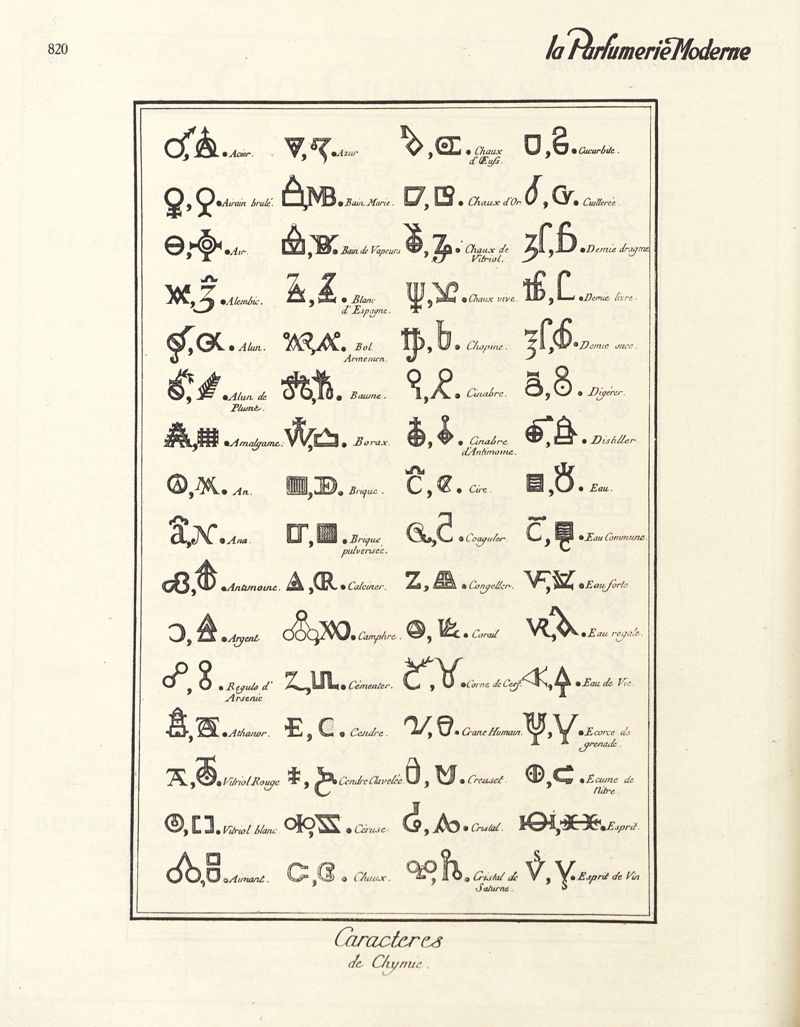 820
la Parfumerie Moderne
Acier.
Azur
Chaux
d'Œufs.
Cucurbite.
Airain brulé.
Bain Marie.
Chaux d'Or
Cuillerée.
Air
Bain de Vapeurs
Chaux de
Vitriol.
Demie dragme
Alembic.
Blanc
d'Espagne.
Chaux vive.
Demie livre.
Alun.
Bol
Armenien.
Chopine.
Demie once.
Alun de
Plume.
Baume.
Cinabre.
Digérer.
Amalgame.
Borax.
Cinabre
d'Antimoine.
Distiller
An.
Brique.
Cire.
Eau.
Ana.
Brique
pulverisée.
Coaguler.
Eau Commune
Antimoine.
Calciner.
Congeller.
Eau forte
Argent
Camphre.
Corail
Eau regale.
Regule d'
Arsenic
Cémenter.
Corne de Cerf
Eau de Vie.
Athanor.
Cendre.
Crane Humain.
Ecorce de
grenade.
Vitriol Rouge
Cendre Clavelée
Creuset.
Ecume de
Nitre.
Vitriol blanc
Céruse
Cristal.
Esprit.
Aimant.
Chaux.
Cristal de
Saturne.
Esprit de Vin
Caracteres
de Chymie.